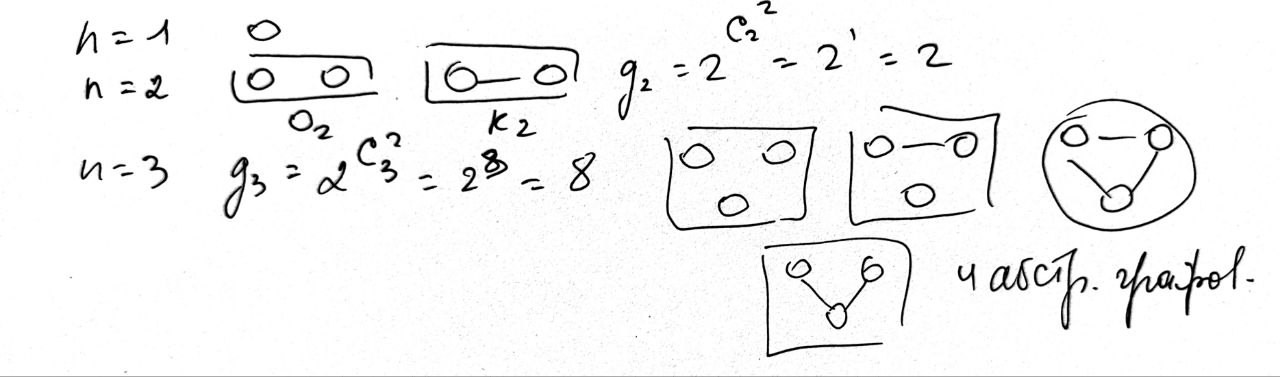 n = 1
n = 2 O₂ K₂ g₂ = 2^{C₂²} = 2¹ = 2
n = 3 g₃ = 2^{C₃²} = 2³ = 8
4 абстр. графов.